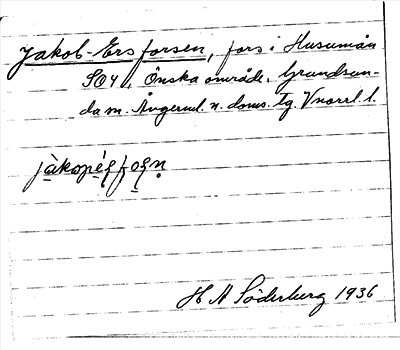 Jakob-Ersforsen, fors i Husumån
SO4, Önska område. Grundsun-
da sn. Ångerml. n. doms. tg. Vnorrl. l.
H A Söderberg 1936